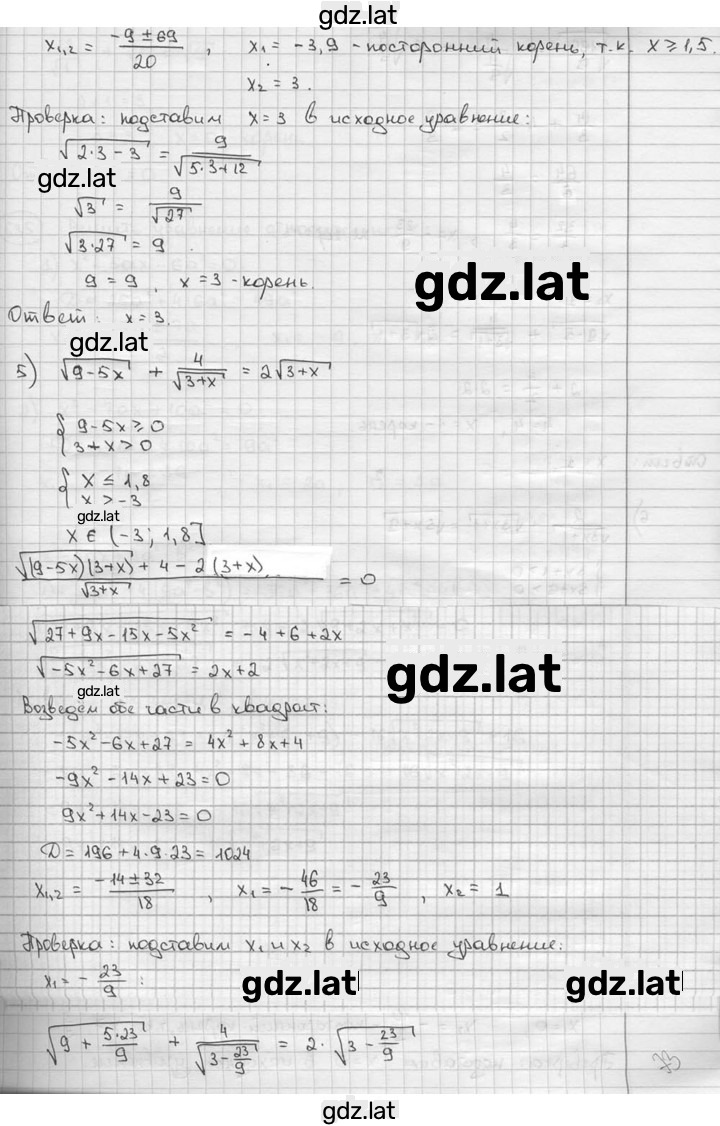 gdz.lat
x₁,₂ = (-9 ± 69)/20 , x₁ = -3,9 - посторонний корень, т.к. x ≥ 1,5.
x₂ = 3.
Проверка: подставим x = 3 в исходное уравнение:
√(2·3 - 3) = 9/√(5·3+12)
gdz.lat
√3 = 9/√27
√(3·27) = 9
9 = 9, x = 3 - корень.
gdz.lat
Ответ: x = 3.
gdz.lat
5) √(9-5x) + 4/√(3+x) = 2√(3+x)
{ 9-5x ≥ 0
3+x > 0
{ x ≤ 1,8
x > -3
gdz.lat
x ∈ (-3; 1,8]
(√((9-5x)(3+x)) + 4 - 2(3+x))/√(3+x) = 0
√(27+9x-15x-5x²) = -4+6+2x
√(-5x²-6x+27) = 2x+2
gdz.lat
gdz.lat
Возведём обе части в квадрат:
-5x²-6x+27 = 4x²+8x+4
-9x²-14x+23=0
9x²+14x-23=0
D=196+4·9·23=1024
x₁,₂ = (-14±32)/18 , x₁ = -46/18 = -23/9 , x₂ = 1
Проверка: подставим x₁ и x₂ в исходное уравнение:
x₁ = -23/9 :
gdz.lat gdz.lat
√(9 + 5·23/9) + 4/√(3-23/9) = 2·√(3-23/9)
gdz.lat